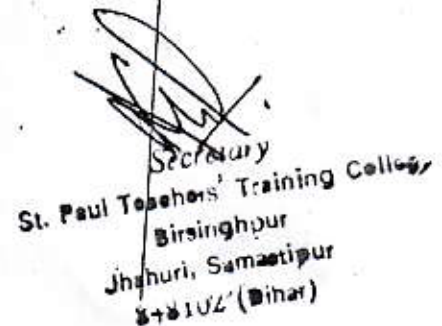 Secretary
St. Paul Teachers' Training College,
Birsinghpur
Jhahuri, Samastipur
848102 (Bihar)